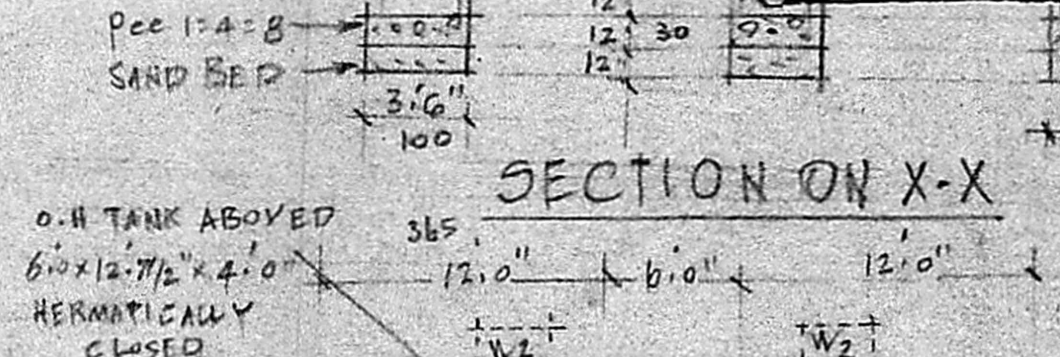 Pcc 1:4:8
SAND BED
12
12 30
12
3'.6"
100
SECTION ON X-X
O.H TANK ABOVED
6'.0 x 12'.7 1/2" x 4'.0"
HERMATICALLY
CLOSED
365
12'.0" 6'.0" 12'.0"
W2 W2